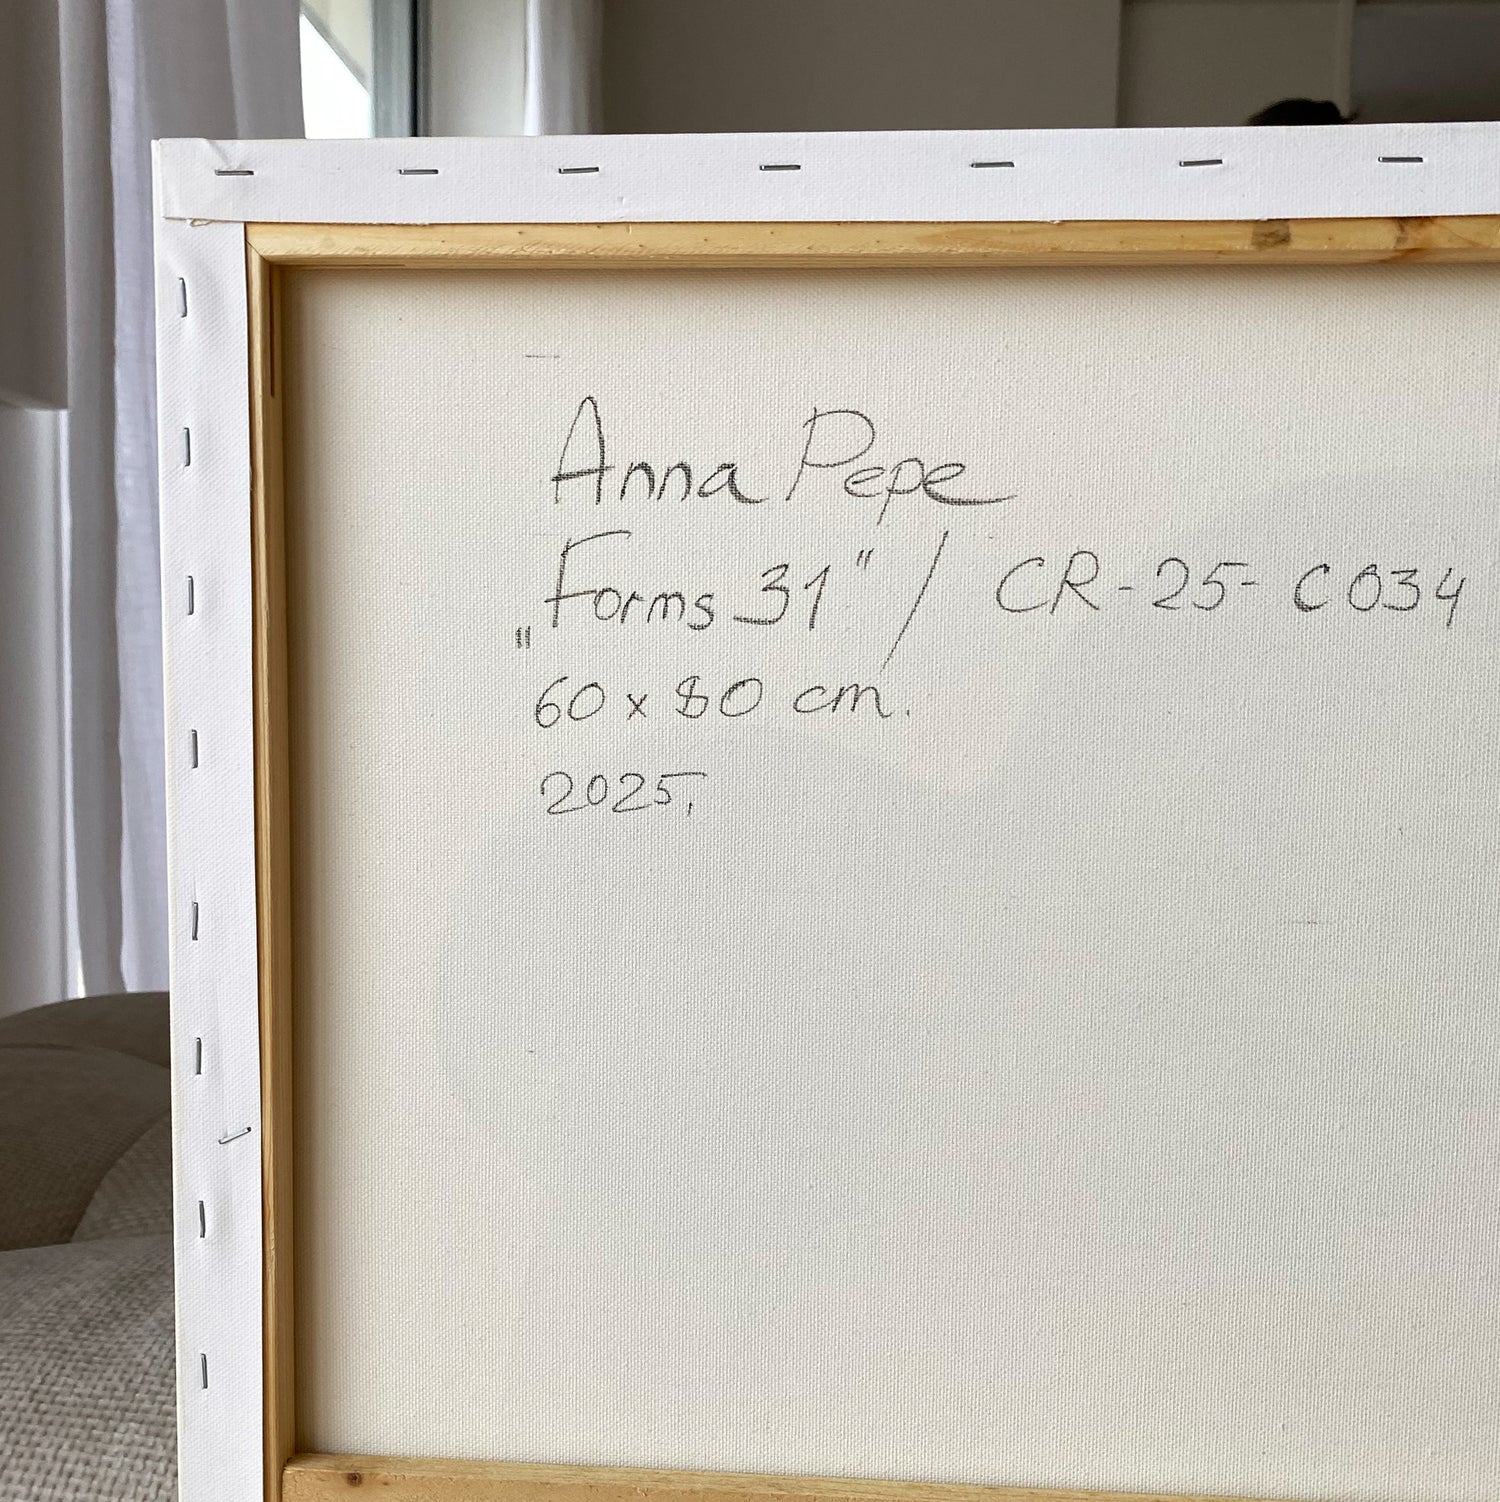 Anna Pepe
„Forms 31" / CR-25-C034
60 x 80 cm.
2025.